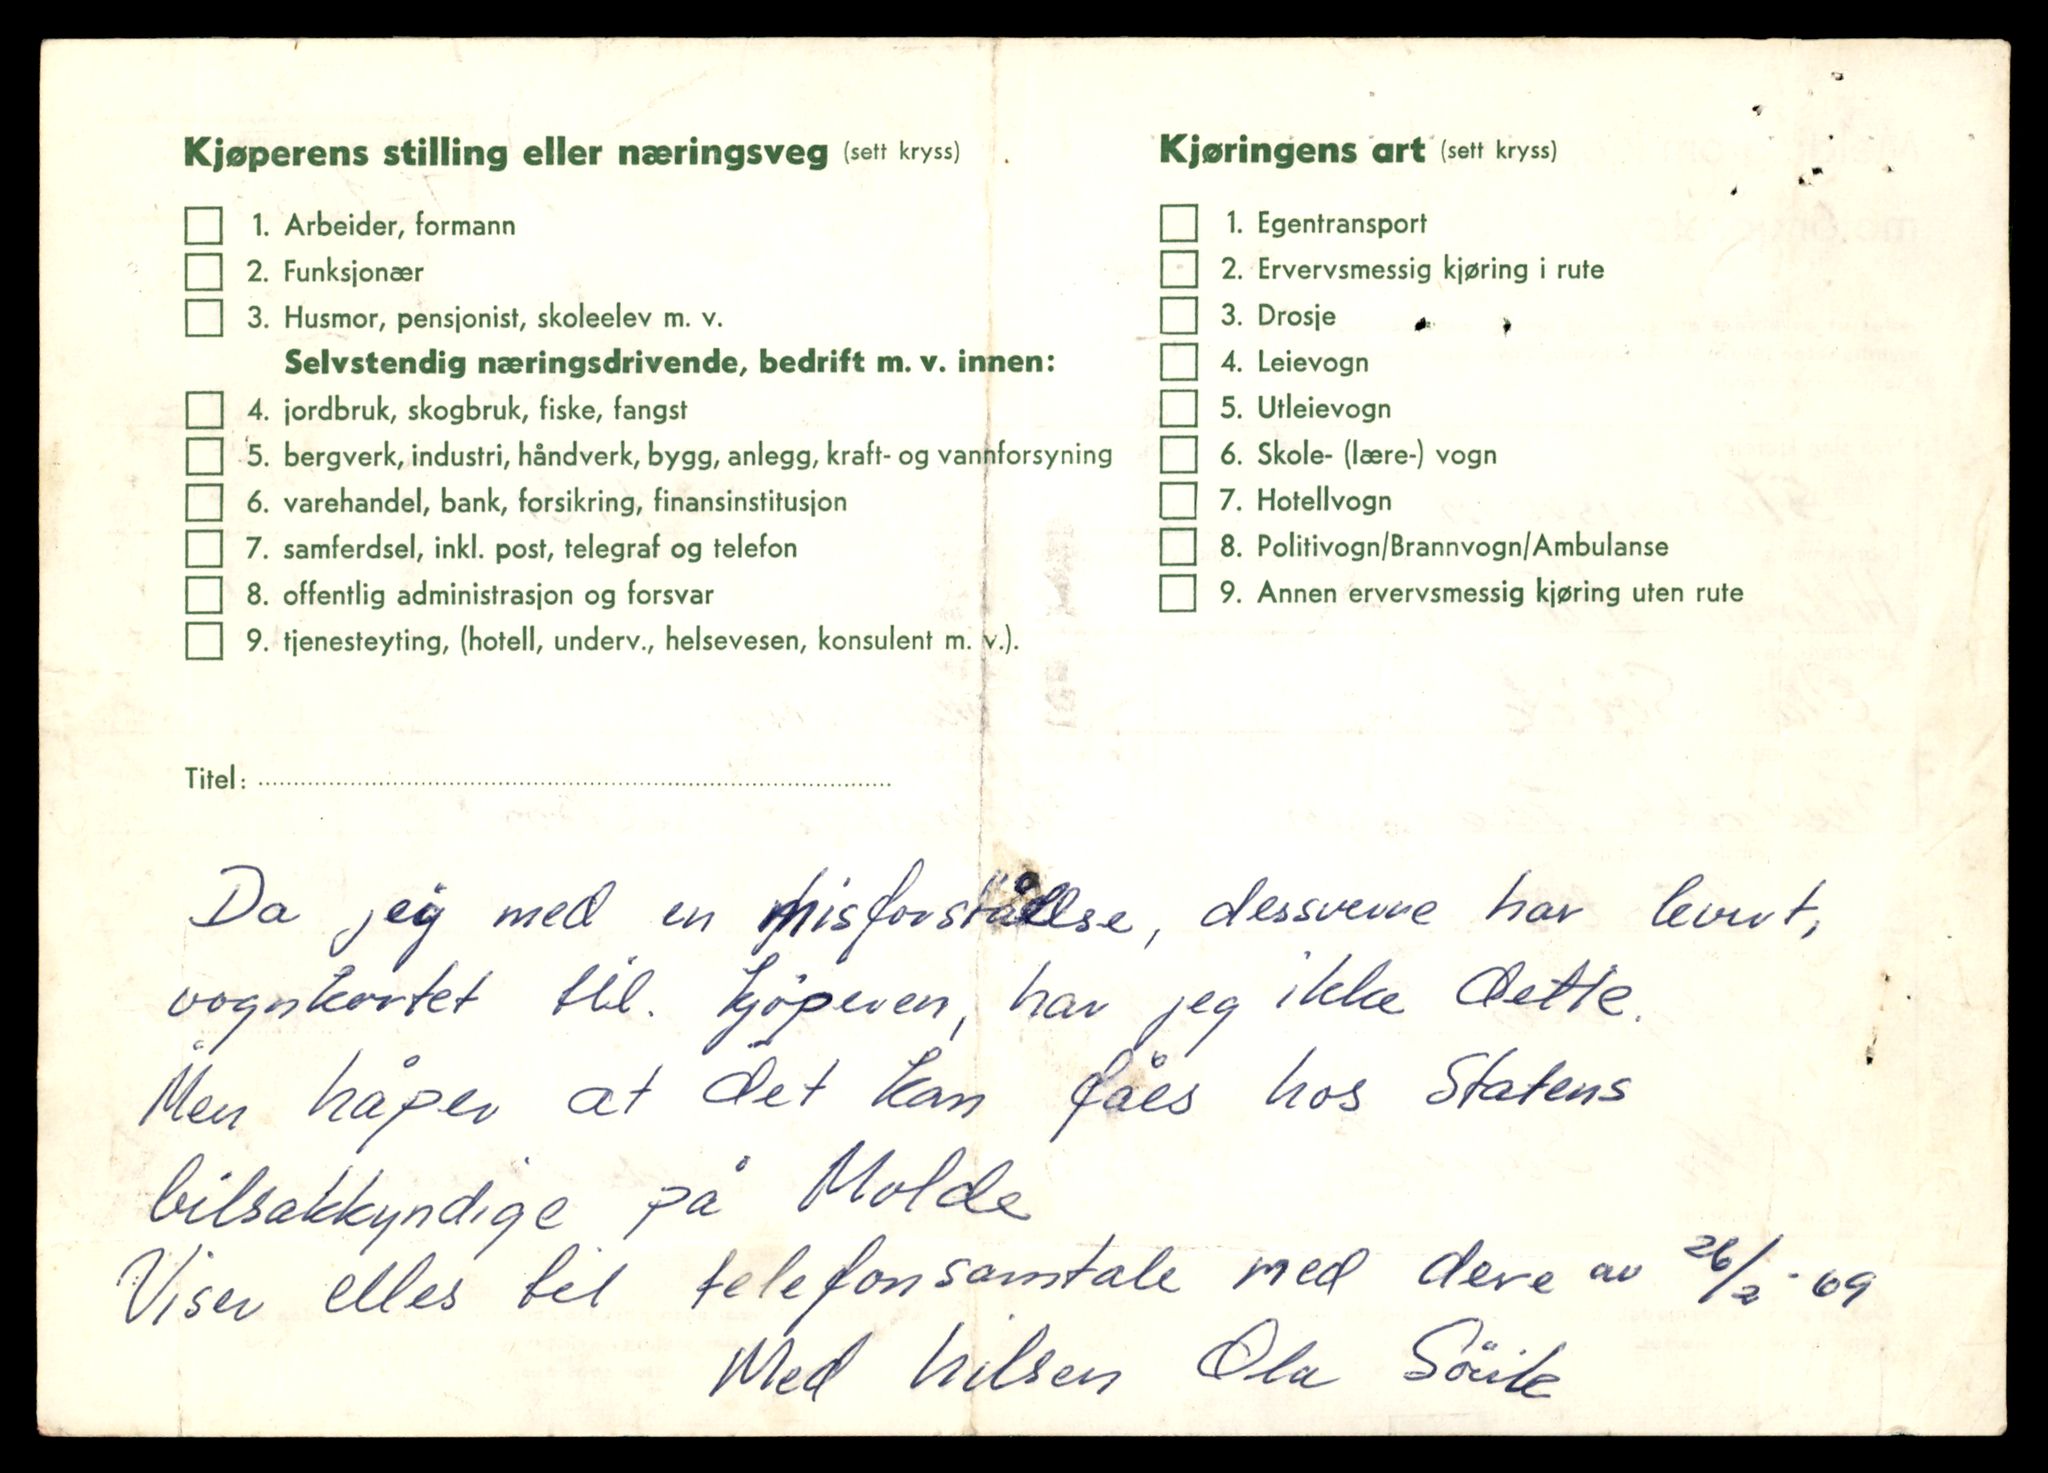 Kjøperens stilling eller næringsveg (sett kryss)
1. Arbeider, formann
2. Funksjonær
3. Husmor, pensjonist, skoleelev m. v.
Selvstendig næringsdrivende, bedrift m. v. innen:
4. jordbruk, skogbruk, fiske, fangst
5. bergverk, industri, håndverk, bygg, anlegg, kraft- og vannforsyning
6. varehandel, bank, forsikring, finansinstitusjon
7. samferdsel, inkl. post, telegraf og telefon
8. offentlig administrasjon og forsvar
9. tjenesteyting, (hotell, underv., helsevesen, konsulent m. v.).
Titel:
Kjøringens art (sett kryss)
1. Egentransport
2. Ervervsmessig kjøring i rute
3. Drosje
4. Leievogn
5. Utleievogn
6. Skole- (lære-) vogn
7. Hotellvogn
8. Politivogn/Brannvogn/Ambulanse
9. Annen ervervsmessig kjøring uten rute
Da jeg med en misforståelse, dessverre har levert,
vognkortet til. kjöperen, har jeg ikke dette.
Men håper at det kan fåes hos Statens
bilsakkyndige på Molde
Viser elles til telefonsamtale med dere av 26/2-69
Med hilsen Ola